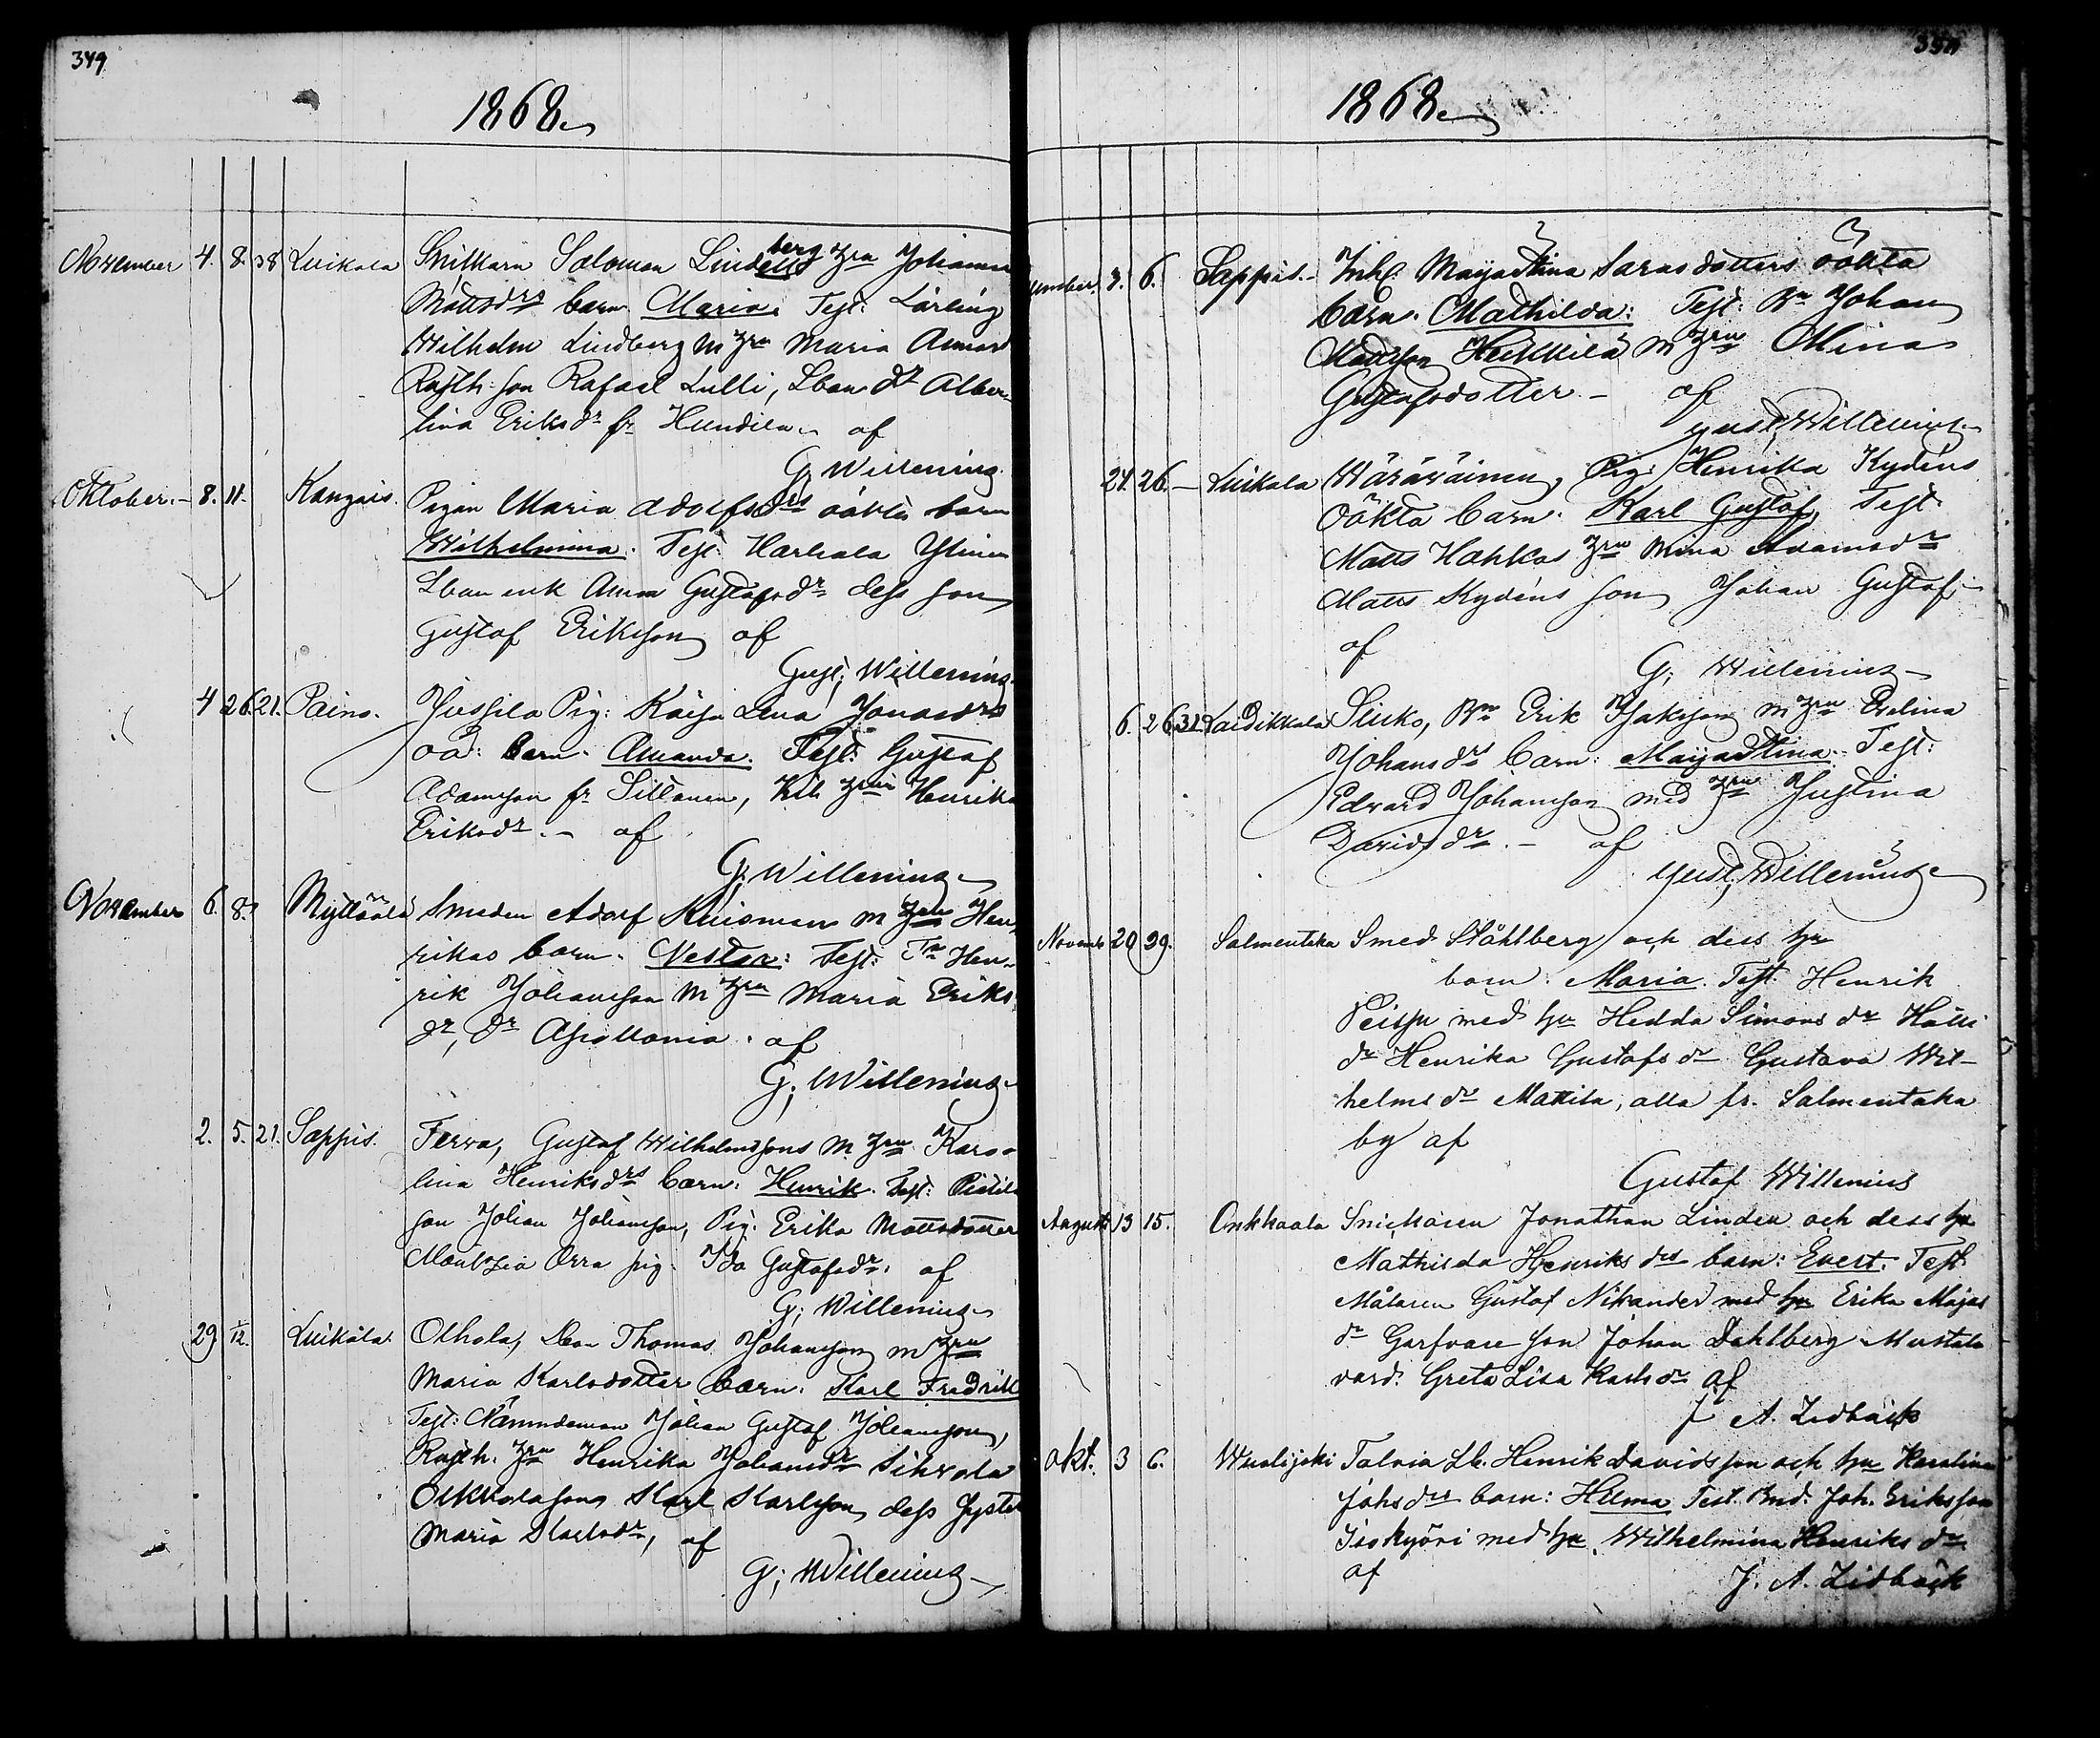 349
1868
November 4. 8. 38 Luikala Snikarn Salomon Lindells berg hru Johanna
Mattsdrs barn Maria. Test: Lärling
Wilhelm Lindberg m hru Maria
Rusth: son Rafael Lulli, Lbon dr Alber-
tina Eriksdr fr Hundila af
G. Willenius
Oktober. 8. 11. Kangais. Pigan Maria Adolfsdrs oäkta barn
Wilhelmina. Test:
Lbon enk Anna Gustafsdr dess son
Gustaf Eriksson af
Gust; Willenius
4 26. 21. Paino. Jussila Pig: Kaisa Lena Jonasdrs
oä: Barn. Amanda. Test: Gustaf
Adamsson fr Sillanen, hru Henrika
Eriksdr. - af
G; Willenius
November 6. 8. Myttäälä Smeden Adolf Kuisman m hru Hen-
rikas barn. Nestor: Test: Hen-
rik Johansson m hru Maria Eriks
dr, dr Apollonia. af
G; Willenius
2. 5. 21. Sappis. Terva, Gustaf Wilhelmssons m. hru Karo-
lina Henriksdrs barn: Henrik. Test:
son Johan Johansson, Pig. Erika Mattsdotter
Orra pig. Ida Gustafsdr. af
G; Willenius
29 1/12. Luikala. Olhola, Thomas Johansson m hru
Maria Karlsdotter barn. Karl Fredrik
Test: Nämndeman Johan Gustaf Johansson,
Rusth. hru Henrika Johansdr Sihvola
Olkkola son Karl Karlsson, dess syster
Maria Karlsdr, af
G; Willenius
1868
3. 6. Sappis. Inh. Maja Stina Sarasdotters oäkta
barn. Mathilda: Test: Bn Johan
Mattsson Heikkilä m hru Mina
Gustafsdotter. - af
Gust; Willenius
24. 26. Luikala Wäräväinen, Pig: Henrika Kydéns
Oäkta barn. Karl Gustaf, Test.
Matts Hahkas hru Mina Adamsdr
Matts Kydéns son Johan Gustaf
af
G; Willenius
6. 26. 31. Laidikkala Sluko, Bn Erik Isaksson m hru Evelina
Johansdrs barn: Maja Stina. Test:
Edvard Johansson med hru Justina
Davidsdr. - af
Gust; Willenius
Novemb 20 29. Salmentaka Smed Ståhlberg och dess hru
barn: Maria. Test. Henrik
med hru Hedda Simonsdr Hälli
dr Henrika Gustafsdr Gustava Wil-
helmsdr Mattila, alla fr. Salmentaka
by af
Gustaf Willenius
Augusti 13 15. Onkkaala Snickaren Jonathan Linden och dess hru
Mathilda Henriksdrs barn: Evert. Test.
Målaren Gustaf Nikander med hru Erika Majas
dr Garfvare son Johan Dahlberg Mustala
värd. Greta Lisa Karlsdr af
J. A. Lidbäck
Okt. 3 6. Wuolijoki Talvia Lb. Henrik Davidsson och hru Karolina
Johsdrs barn: Hilma Test. Bnd. Joh. Eriksson
Isokyöri med hru Wilhelmina Henriksdr
af
J. A. Lidbäck